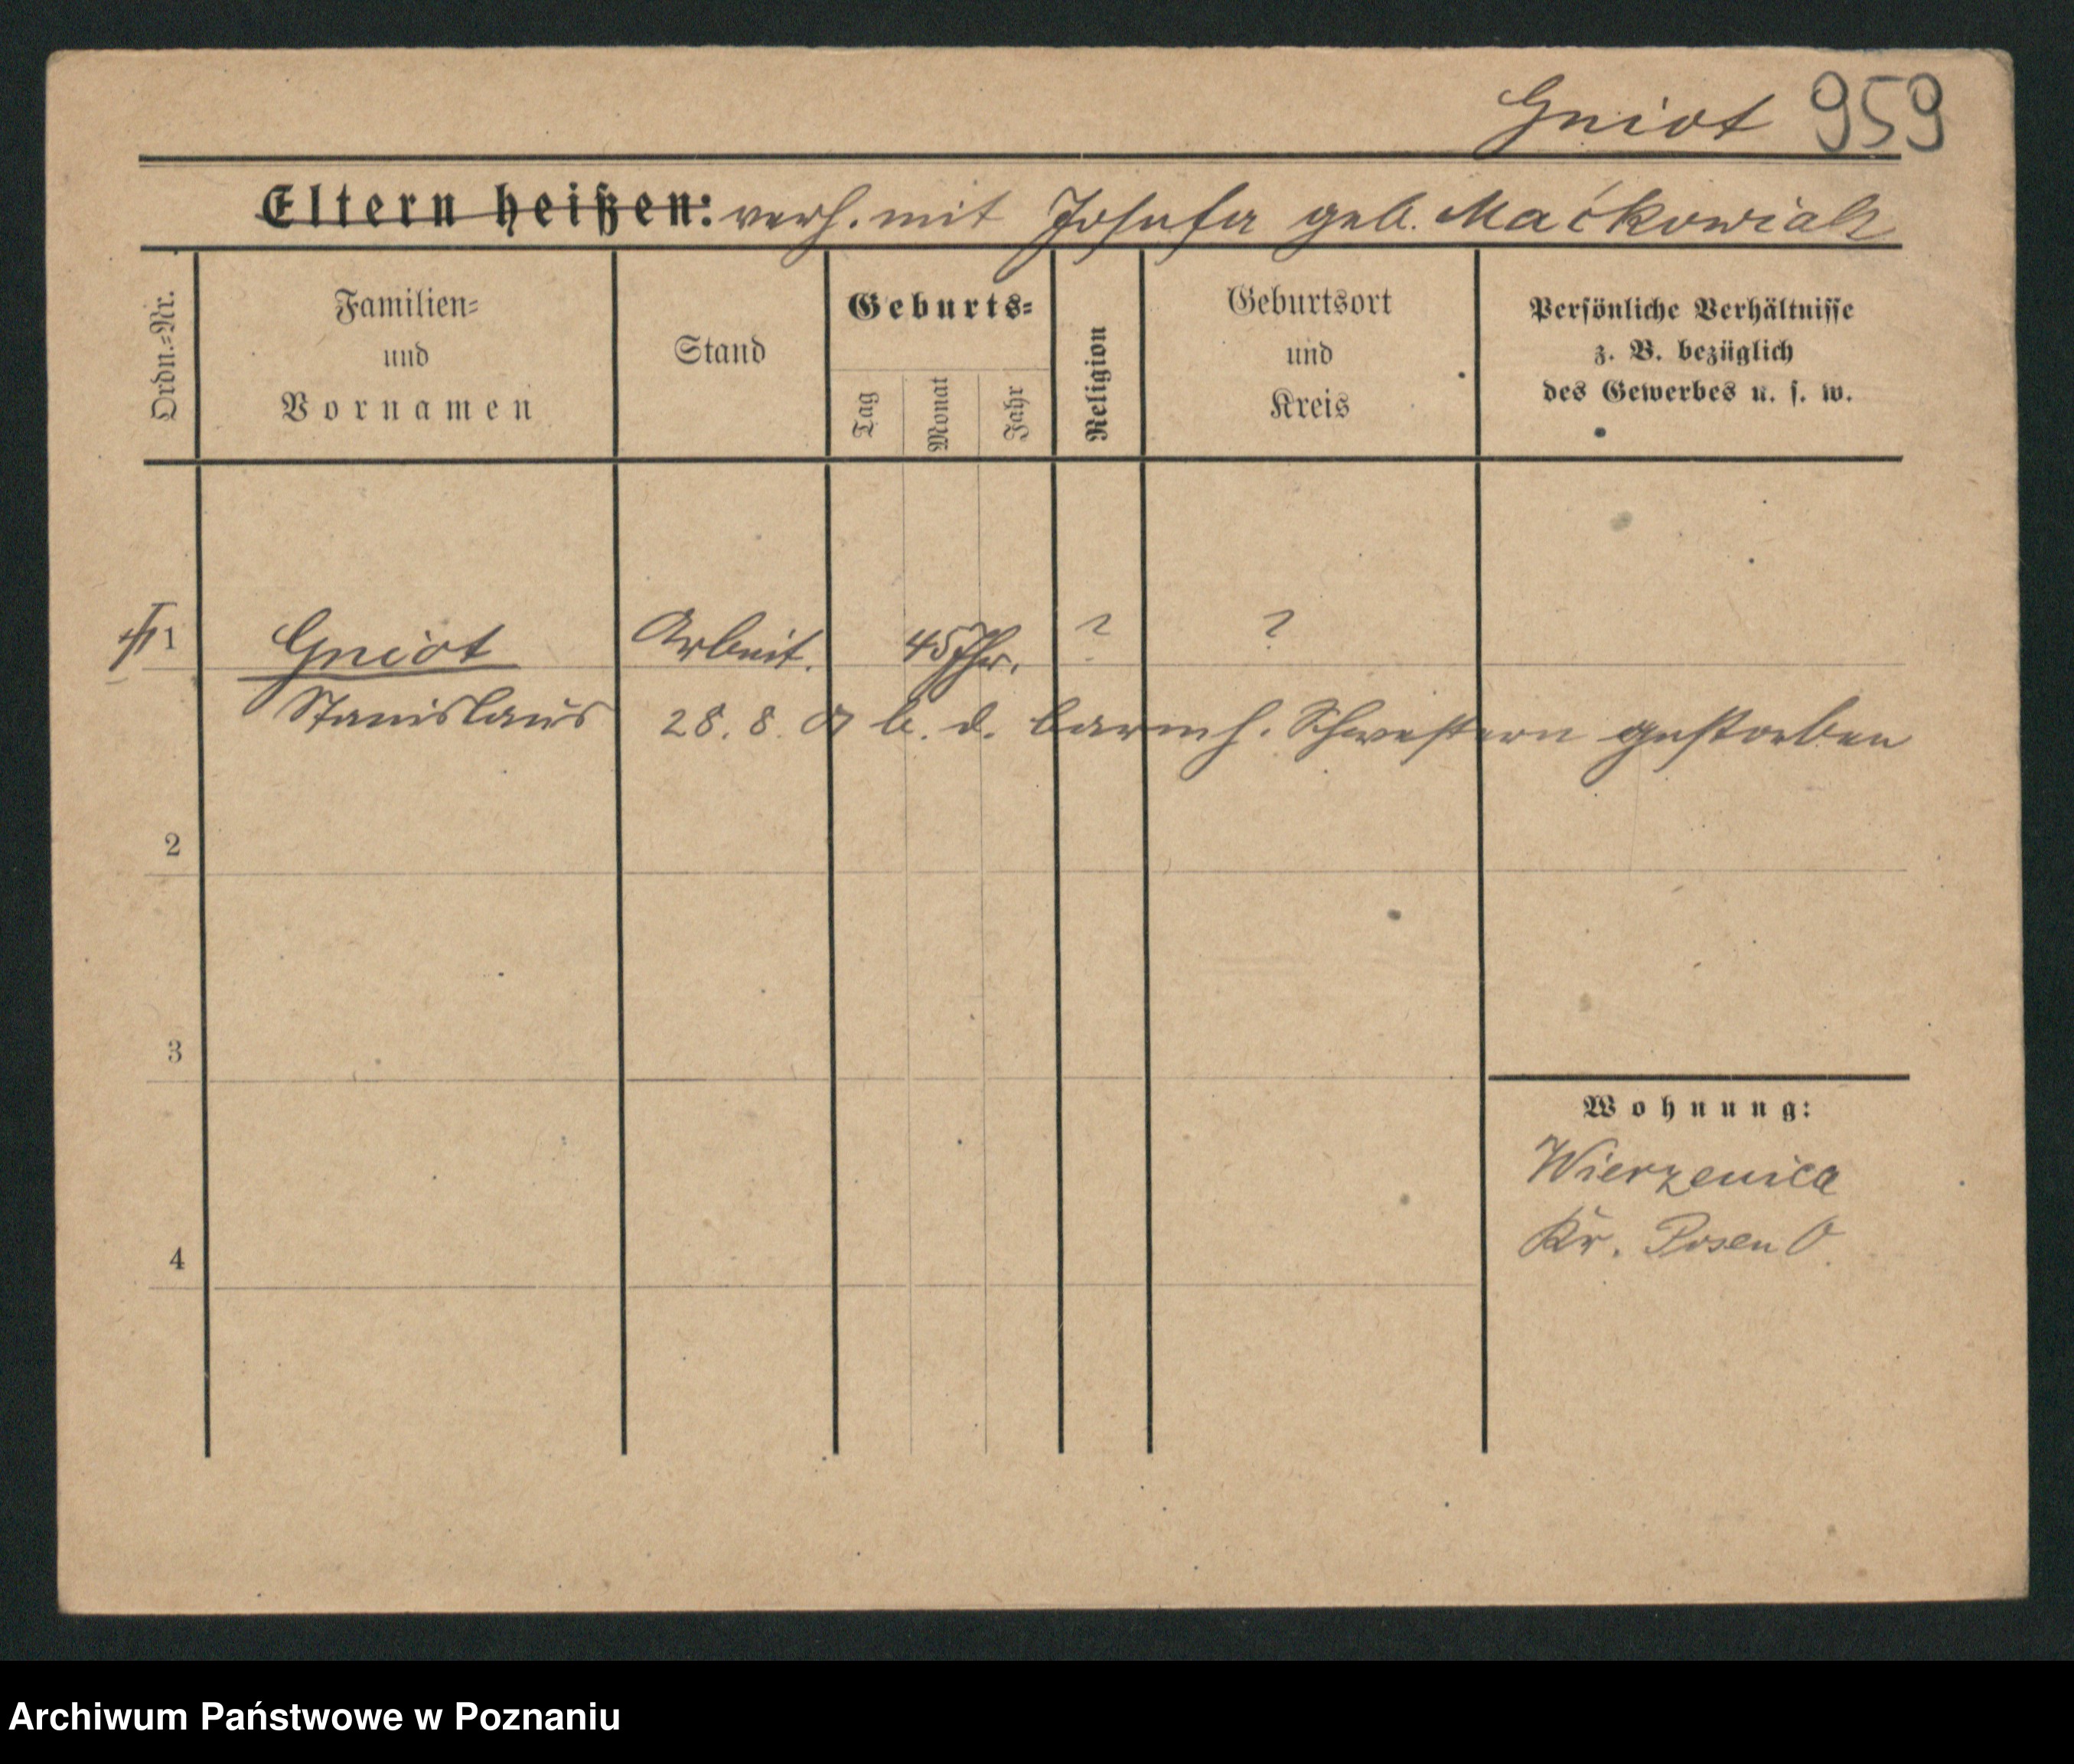 Gniot 959
Eltern heißen: verh. mit Josefa geb. Maćkowiak
Ordn.-Nr.
Familien-
und
Vornamen
Stand
Geburts-
Tag
Monat
Jahr
Religion
Geburtsort
und
Kreis
Persönliche Verhältnisse
z. B. bezüglich
des Gewerbes u. s. w.
1 Gniot Arbeit. 45 Jhr. ? ?
Stanislaus 28. 8. 07 b. d. barmh. Schwestern gestorben
2
3
Wohnung:
Wierzenica
Kr. Posen O
4
Archiwum Państwowe w Poznaniu